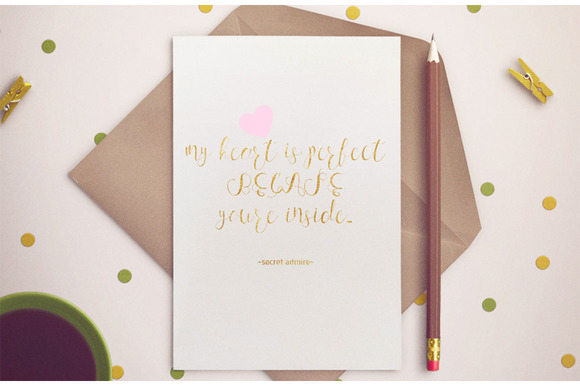 my heart is perfect
BECAUSE
you're inside.
~secret admire~